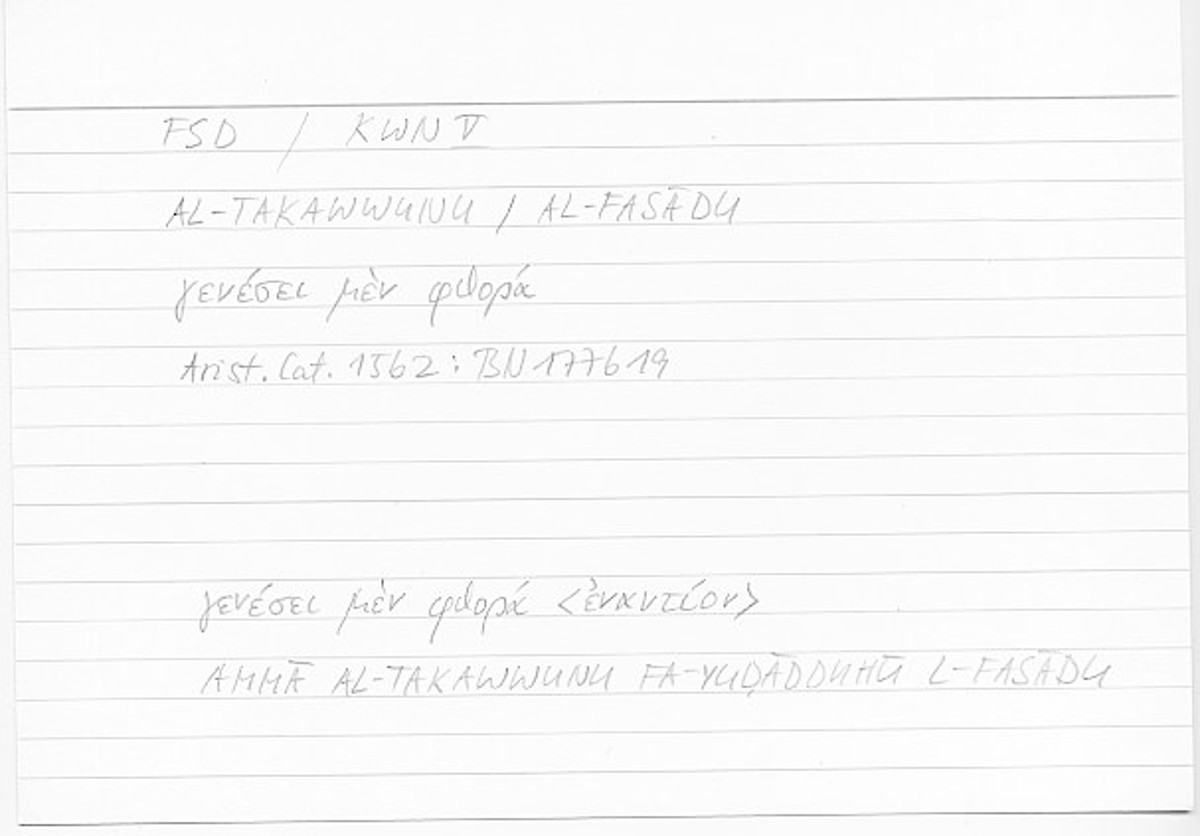 FSD / KWN V
AL-TAKAWWUNU / AL-FASĀDU
γενέσει μὲν φθορά
Arist. Cat. 15b2 : BN 177b19
γενέσει μὲν φθορά <ἐναντίον>
AMMĀ AL-TAKAWWUNU FA-YUḌĀDDUHŪ L-FASĀDU